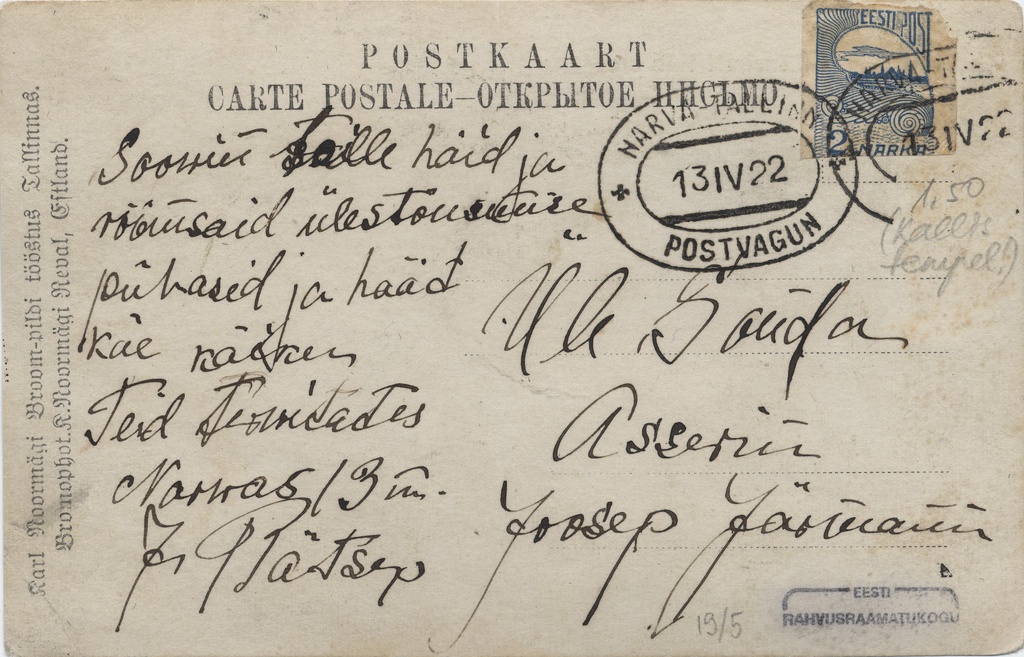 POSTKAART
CARTE POSTALE—ОТКРЫТОЕ ПИСЬМО
EESTI POST
2 MARKA
NARVA-TALLINN
13 IV 22
POSTVAGUN
13 IV 22
1.50
(kallis
tempel!)
Soowin Teile häid ja
rõõmsaid ülestõusmise
pühasid ja hääd
käe käiku
Teid terwitades
Narwas 13 m.
J. Pätsep
Asserin
Joosep Järmann
19/5
EESTI
RAHVUSRAAMATUKOGU
Karl Noormägi Broom-pildi tööstus Tallinnas.
Bromophot. K. Noormägi Reval, Estland.